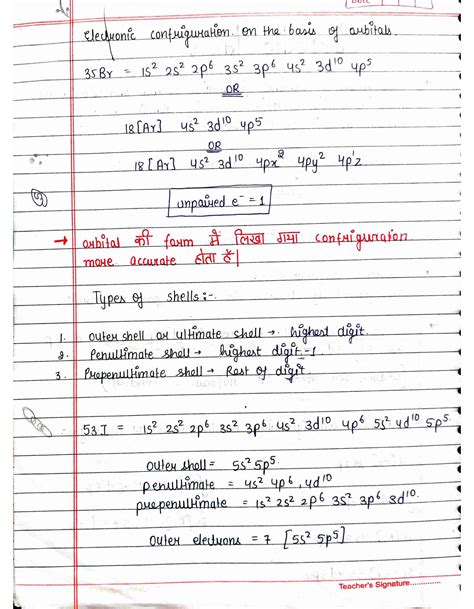 Date
Electronic configuration on the basis of orbitals.
35Br = 1s² 2s² 2p⁶ 3s² 3p⁶ 4s² 3d¹⁰ 4p⁵
OR
18[Ar] 4s² 3d¹⁰ 4p⁵
OR
18[Ar] 4s² 3d¹⁰ 4px² 4py² 4p¹z
unpaired e⁻ = 1
→ orbital की form में लिखा गया configuration
more accurate होता हैं|
Types of shells:-
1. Outer shell or ultimate shell → highest digit.
2. Penultimate shell → highest digit-1
3. Prepenultimate shell → Rest of digit.
53I = 1s² 2s² 2p⁶ 3s² 3p⁶ 4s² 3d¹⁰ 4p⁶ 5s² 4d¹⁰ 5p⁵.
Outer shell = 5s² 5p⁵.
penultimate = 4s² 4p⁶, 4d¹⁰
prepenultimate = 1s² 2s² 2p⁶ 3s² 3p⁶ 3d¹⁰.
Outer electrons = 7 [5s² 5p⁵]
Teacher's Signature..............